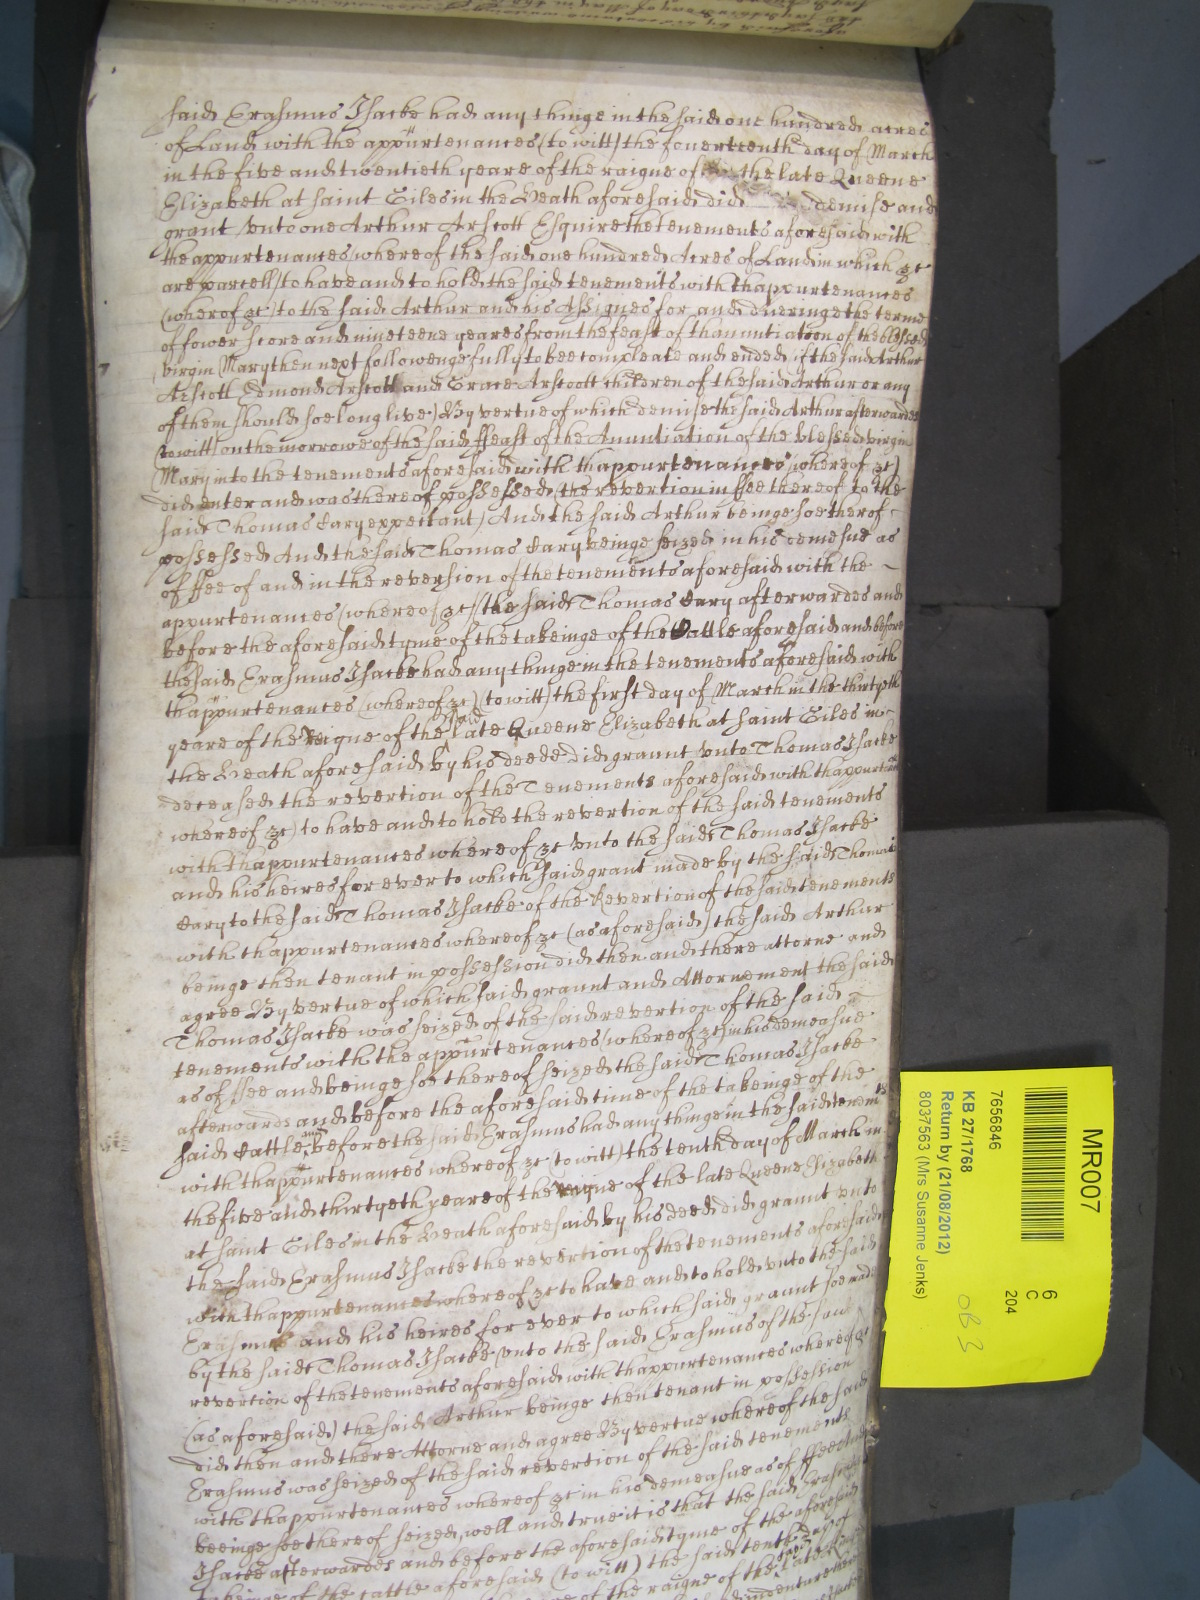 said Erasmus Isacke had any thinge in the said one hundred acres
of Land with the appurtenances (to witt) the fouerteenth day of March
in the five and twentieth yeare of the raigne of the late Queene
Elizabeth at saint Giles in the Heath aforesaid did demise and
grant vnto one Arthur Arscott Esquire the tenements aforesaid with
the appurtenances (whereof the said one hundred Acres of Land in which &c
are parcell) to have and to hold the said tenements with thappurtenances
(wherof &c) to the said Arthur and his Assignes for and dueringe the terme
of fower score and nineteene yeares from the feast of thanuntiatoon of the blessed
virgin Mary then next followenge fully to bee compleate and ended if the said Arthur
Arscott Edmond Arscott and Grace Arscoott children of the said Arthur or any
of them should soe long live) By vertue of which demise the said Arthur afterwardes
(to witt) on the morrowe of the said ffeast of the Anuntiation of the blessed virgin
Mary into the tenements aforesaid with thappurtenances (whereof &c)
did enter and was thereof possessed (the revertion in ffee thereof to the
said Thomas Cary expectant) And the said Arthur beinge soe therof
possessed And the said Thomas Cary beinge seized in his demesne as
of ffee of and in the reversion of the tenements aforesaid with the
appurtenances (whereof &c) the said Thomas Cary afterwardes and
before the aforesaid tyme of the takeinge of the Cattle aforesaid and before
the said Erasmus Isacke had any thinge in the tenements aforesaid with
thappurtenances (whereof &c) (to witt) the first day of March in the thirtyeth
yeare of the Reigne of the said late Queene Elizabeth at saint Giles in
the Heath aforesaid by his deede did graunt vnto Thomas Isacke
deceased the revertion of the Tenements aforesaid with thappurtenances
whereof &c) to have and to hold the revertion of the said tenements
with thappurtenances whereof &c vnto the said Thomas Isacke
and his heires for ever to which said grant made by the said Thomas
Cary to the said Thomas Isacke of the Revertion of the said tenements
with thappurtenances whereof &c (as aforesaid) the said Arthur
beinge then tenant in possession did then and there attorne and
agree By vertue of which said graunt and Attornement the said
Thomas Isacke was seized of the said revertion of the said
tenements with the appurtenances (whereof &c) in his demeasne
as of ffee and beinge soe thereof seized the said Thomas Isacke
afterwards and before the aforesaid time of the takeinge of the
said Cattle and before the said Erasmus had any thinge in the said tenemts
with thappurtenances whereof &c (to witt) the tenth day of March in
the five and thirtyeth yeare of the raigne of the late Queene Elizabeth
at saint Giles in the Heath aforesaid by his deed did graunt vnto
the said Erasmus Isacke the revertion of the tenements aforesaid
with thappurtenances whereof &c to have and to hold vnto the said
Erasmus and his heires for ever to which said graunt soe made
by the said Thomas Isacke vnto the said Erasmus of the said
revertion of the tenements aforesaid with thappurtenances whereof &c
(as aforesaid) the said Arthur beinge then tenant in possession
did then and there Attorne and agree By vertue whereof the said
Erasmus was seized of the said revertion of the said tenements
with thappurtenances whereof &c in his demeasne as of ffee And
beeinge soe thereof seized well and true it is that the said Erasmus
Isacke afterwardes and before the aforesaid tyme of the aforesaid
takeinge of the cattle aforesaid (to witt) the said tenth day of
of the raigne of the said late
indenture
MR007
6
C
204
7656846
KB 27/1768
Return by (21/08/2012)
8037563 (Mrs Susanne Jenks)
OB 3